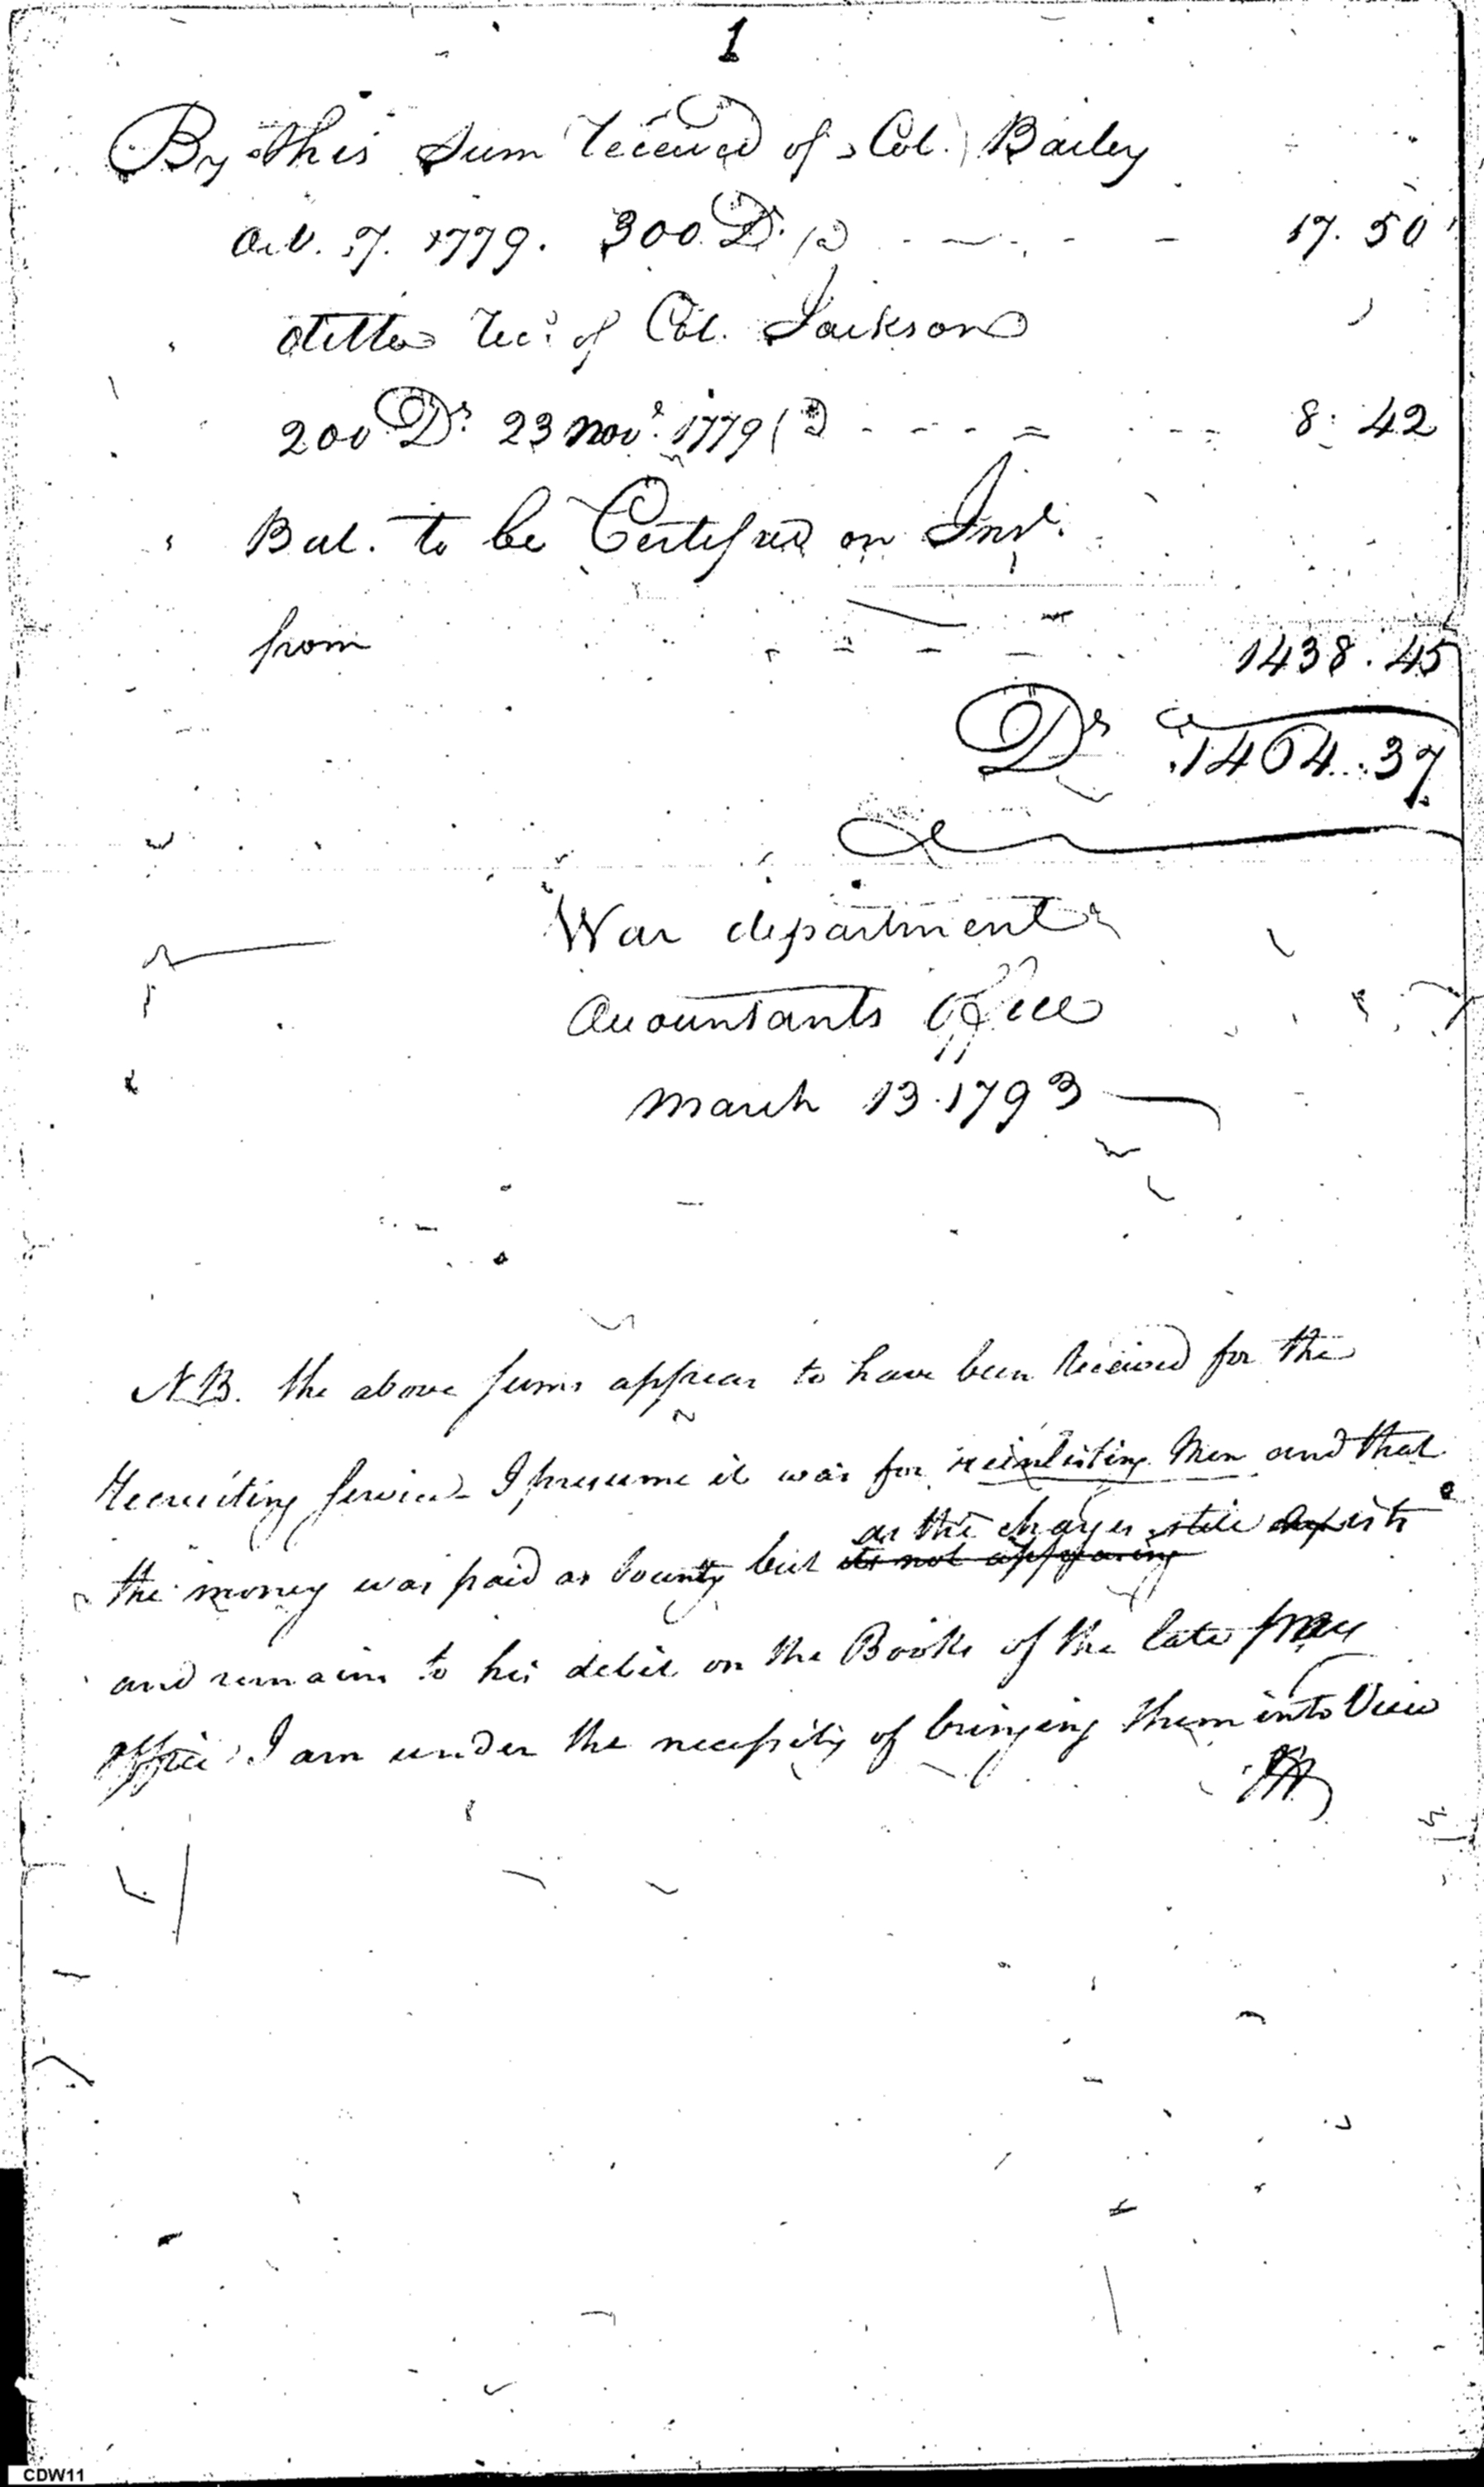 1
By this Sum received of Col. Bailey
Oct. 7. 1779. 300 Drs. 17. 50
ditto rec'd of Col. Jackson
200 Drs. 23 Novr. 1779 8. 42
Bal. to be Certified on Int.
from 1438. 45
Drs 1464. 37
War department
Accountants Office
March 13. 1793
N.B. the above sums appear to have been received for the
Recruiting service I presume it was for reinlisting Men and that
as the charges still exists
the money was paid as bounty but its not appearing
and remains to his debit on the Books of the late pay
office I am under the necessity of bringing them into View
CDW11